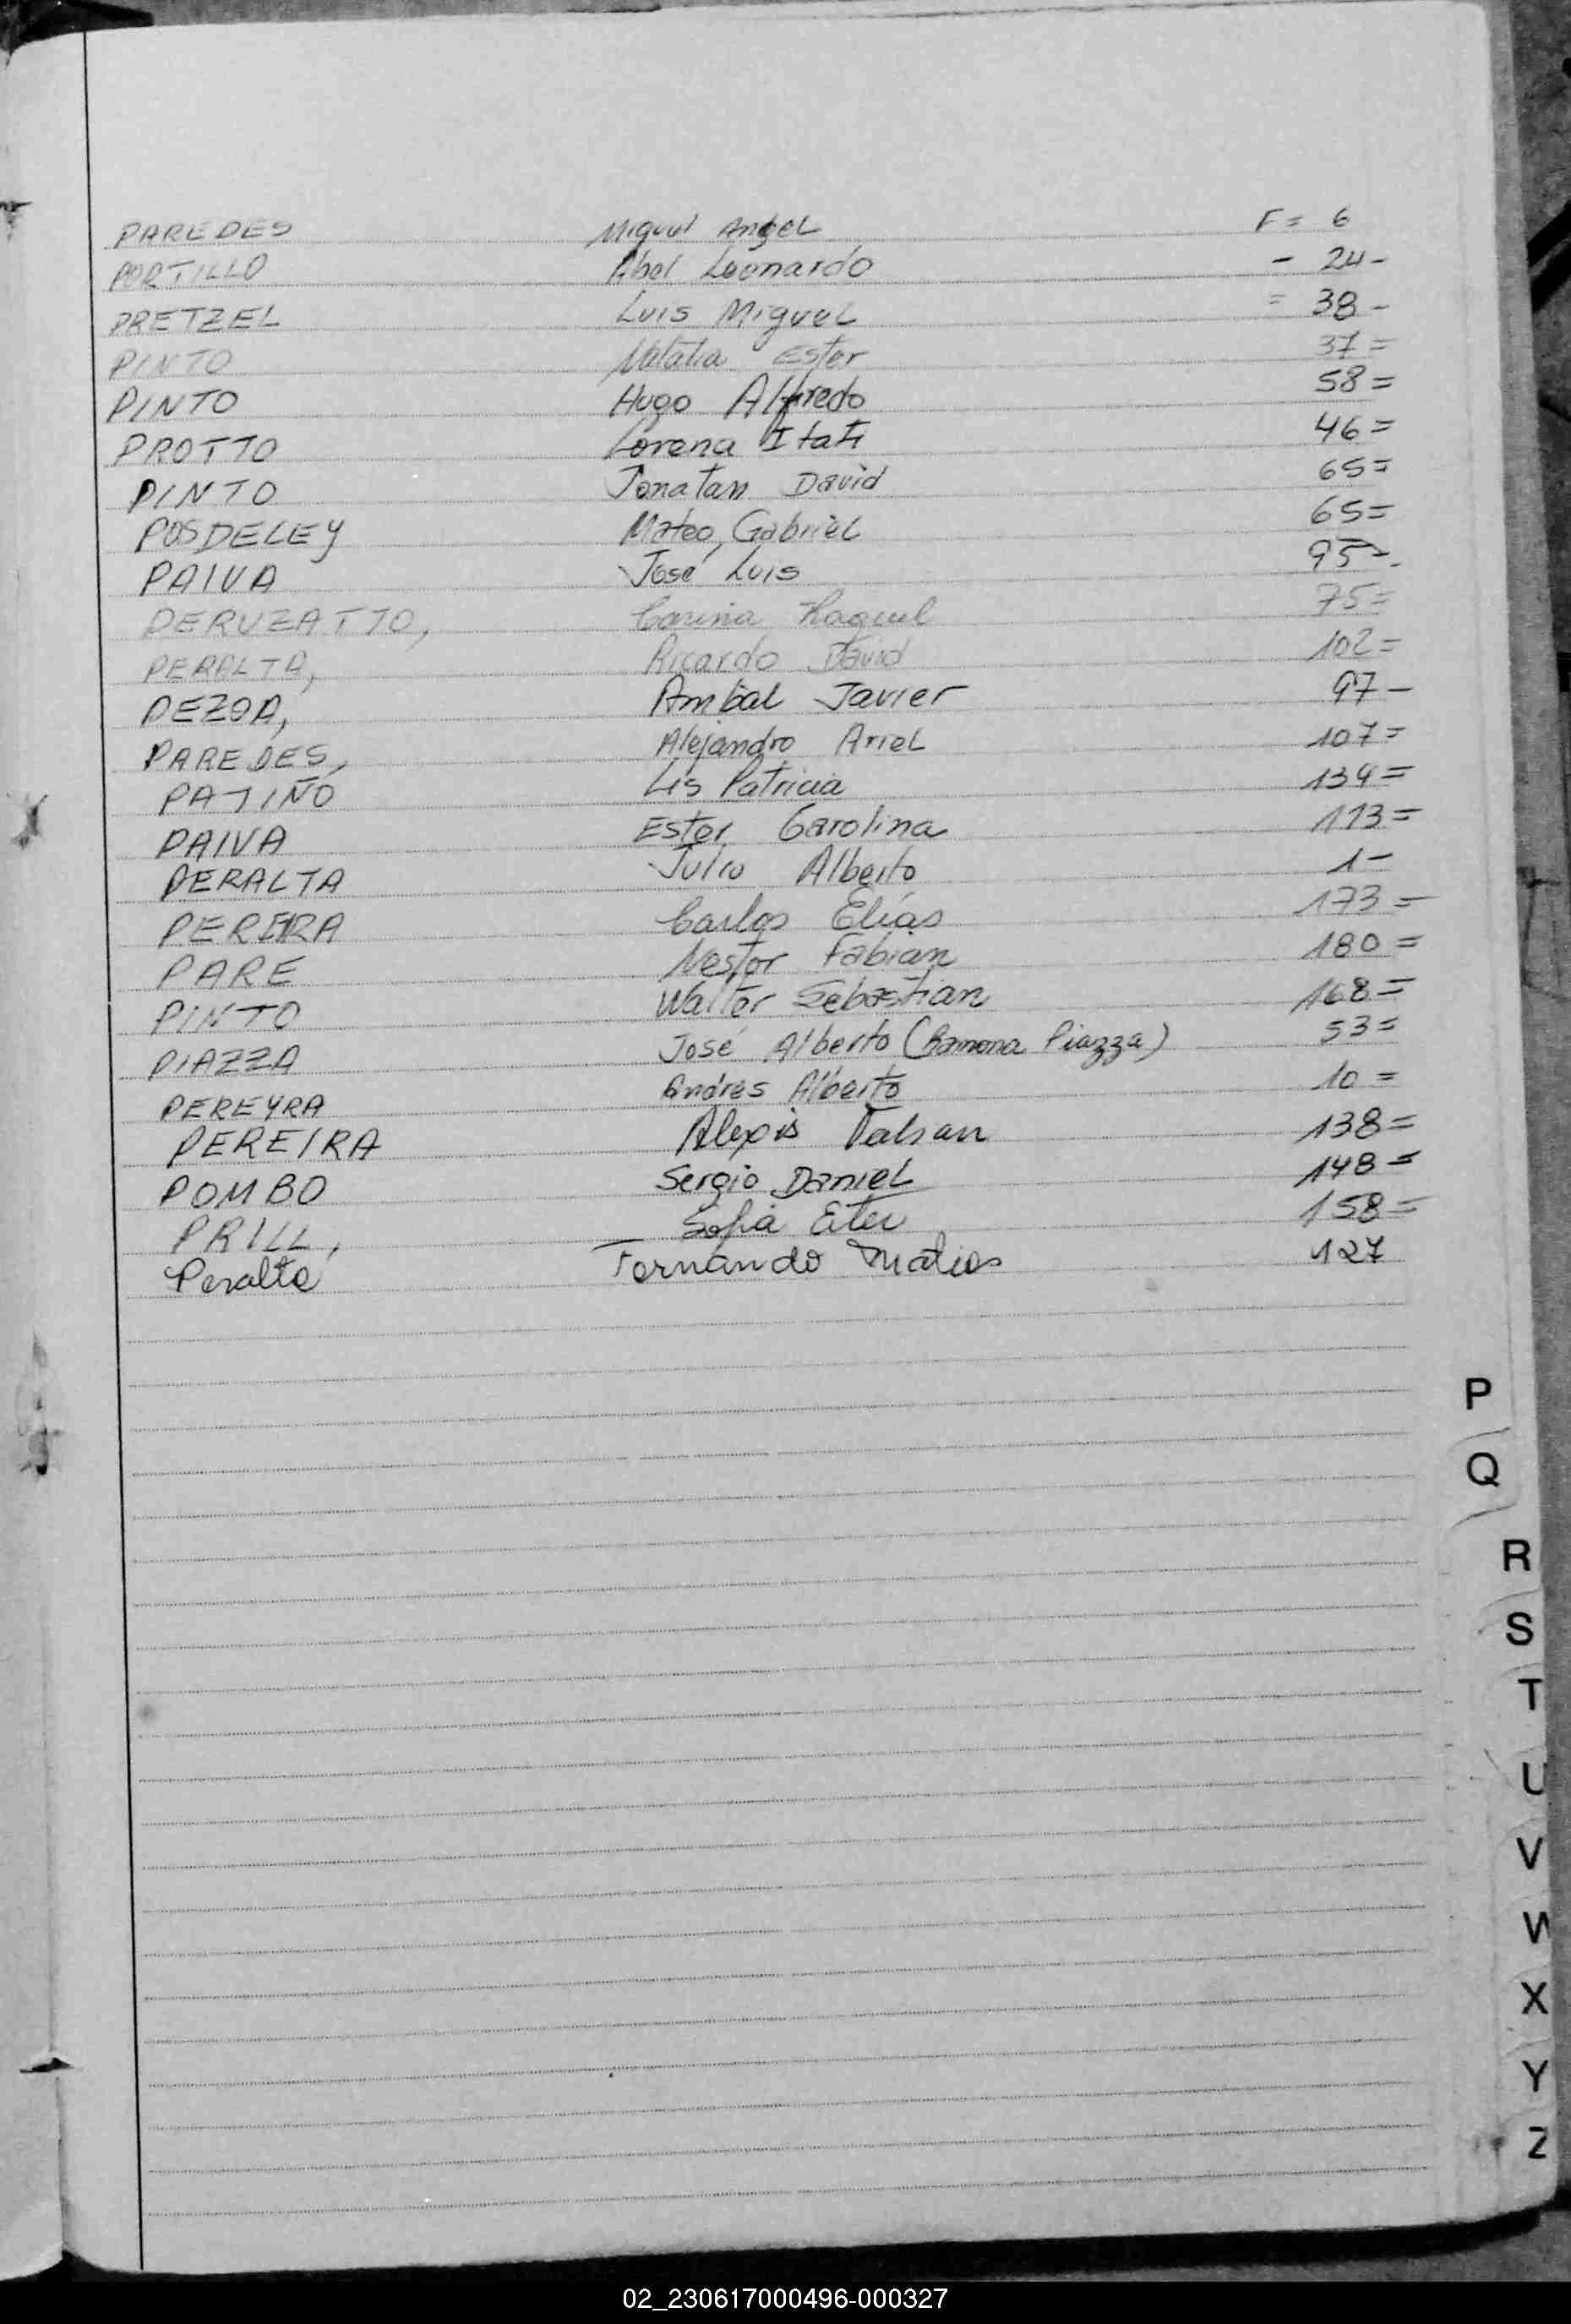 PAREDES Miguel Angel F = 6
PORTILLO Abel Leonardo - 24 -
PRETZEL Luis Miguel = 38 -
PINTO Natalia Ester 37 =
PINTO Hugo Alfredo 58 =
PROTTO Lorena Itati 46 =
PINTO Jonatan David 65 =
POSDELEY Mateo Gabriel 65 =
PAIVA José Luis 95 -
PERUZATTO, Carina Raquel 75 =
PERALTA, Ricardo David 102 =
PEZOA, Anibal Javier 97 -
PAREDES, Alejandro Ariel 107 =
PATIÑO Lis Patricia 134 =
PAIVA Ester Carolina 113 =
PERALTA Julio Alberto 1 -
PEREIRA Carlos Elías 173 =
PARE Nestor Fabian 180 =
PINTO Walter Sebastian 168 =
PIAZZA José Alberto (Ramona Piazza) 53 =
PEREYRA Andres Alberto 10 =
PEREIRA Alexis 138 =
POMBO Sergio Daniel 148 =
PRILL, Sofia Ester 158 =
Peralta Fernando Matias 127
P
Q
R
S
T
U
V
W
X
Y
Z
02_230617000496-000327